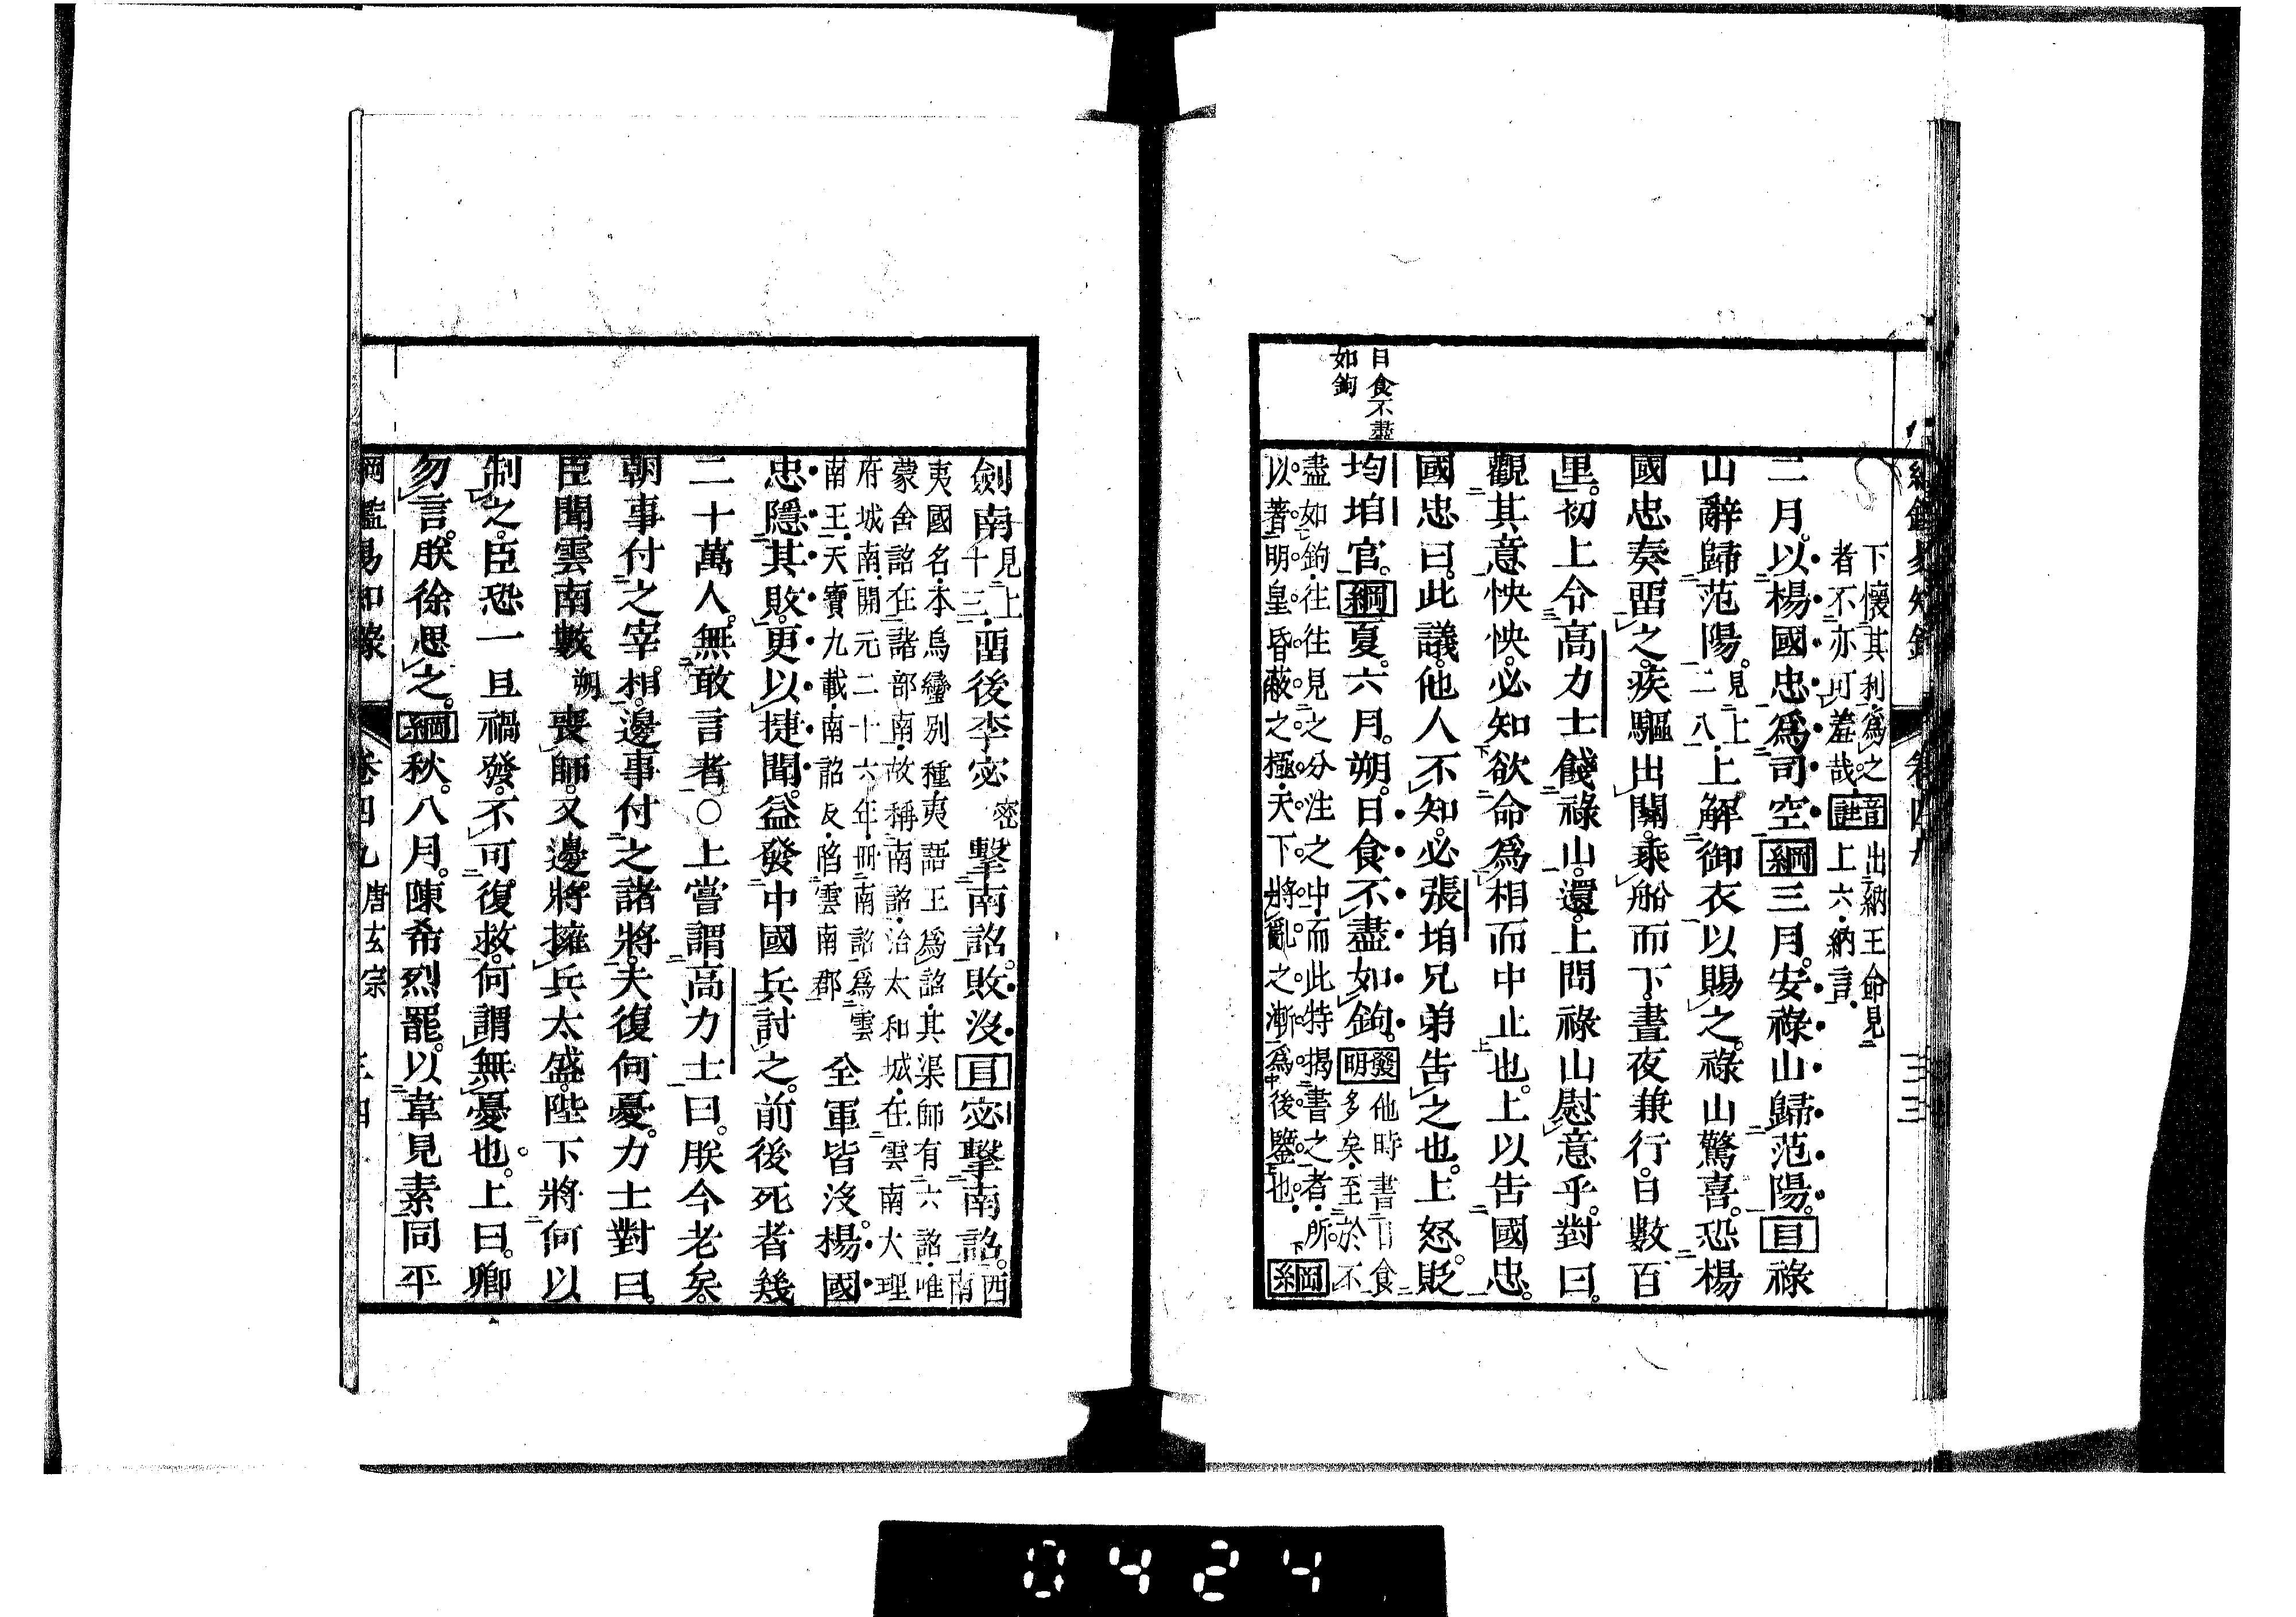 日食不盡
如鉤
下懷其利爲之
者不亦可羞哉
音註
出納王命見
上六納言
二月。以楊國忠爲司空綱三月。安祿山歸范陽。目祿
山辭歸范陽。見上二八上解御衣以賜之。祿山驚喜。恐楊
國忠奏畱之。疾驅出關。乘船而下。晝夜兼行。日數百
里。初上令高力士餞祿山。還。上問祿山慰意乎。對曰。
觀其意怏怏。必知欲命爲相而中止也。上以告國忠。
國忠曰。此議。他人不知。必張垍兄弟告之也。上怒。貶
均垍官。綱夏。六月。朔。日食不盡如鉤。發明
他時書日食
多矣至於不
盡如鉤往往見之分注之中而此特揭書之者所
以著明皇昏蔽之極天下將亂之漸爲後鑒也
綱
劍南見上十三畱後李宓密擊南詔。敗沒目宓擊南詔。西南
夷國名本烏蠻別種夷語王爲詔其渠帥有六詔唯
蒙舍詔在諸部南故稱南詔治太和城在雲南大理
府城南開元二十六年冊南詔爲雲
南王天寶九載南詔反陷雲南郡
全軍皆沒。楊國
忠隱其敗。更以捷聞。益發中國兵討之。前後死者幾
二十萬人。無敢言者○上嘗謂高力士曰。朕今老矣。
朝事付之宰相。邊事付之諸將。夫復何憂。力士對曰。
臣聞雲南數朔喪師。又邊將擁兵太盛。陛下將何以
制之。臣恐一旦禍發。不可復救。何謂無憂也。上曰。卿
勿言。朕徐思之。綱秋。八月。陳希烈罷。以韋見素同平
綱鑑易知錄 卷四九 唐玄宗
0424